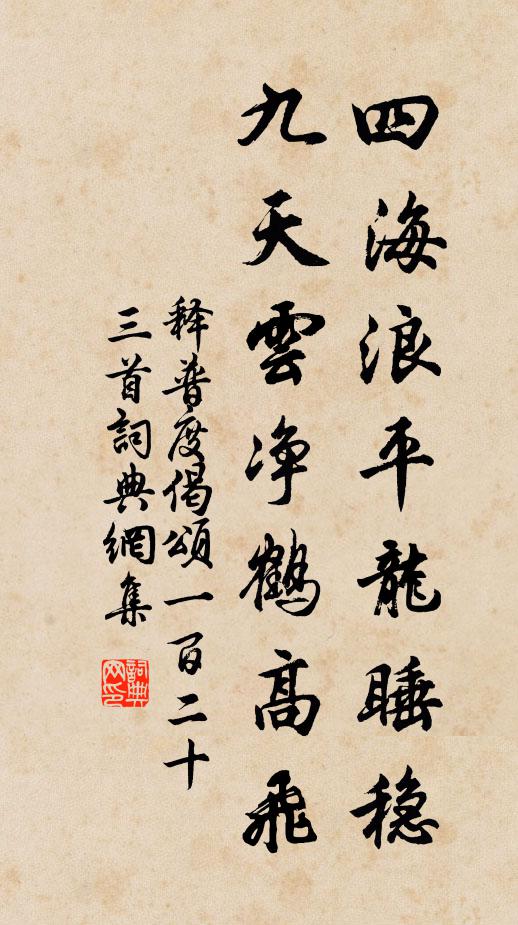 四海浪平龍睡穩
九天雲净鶴高飛
释普度偈頌一百二十
三首詞典網集
詞典
网印